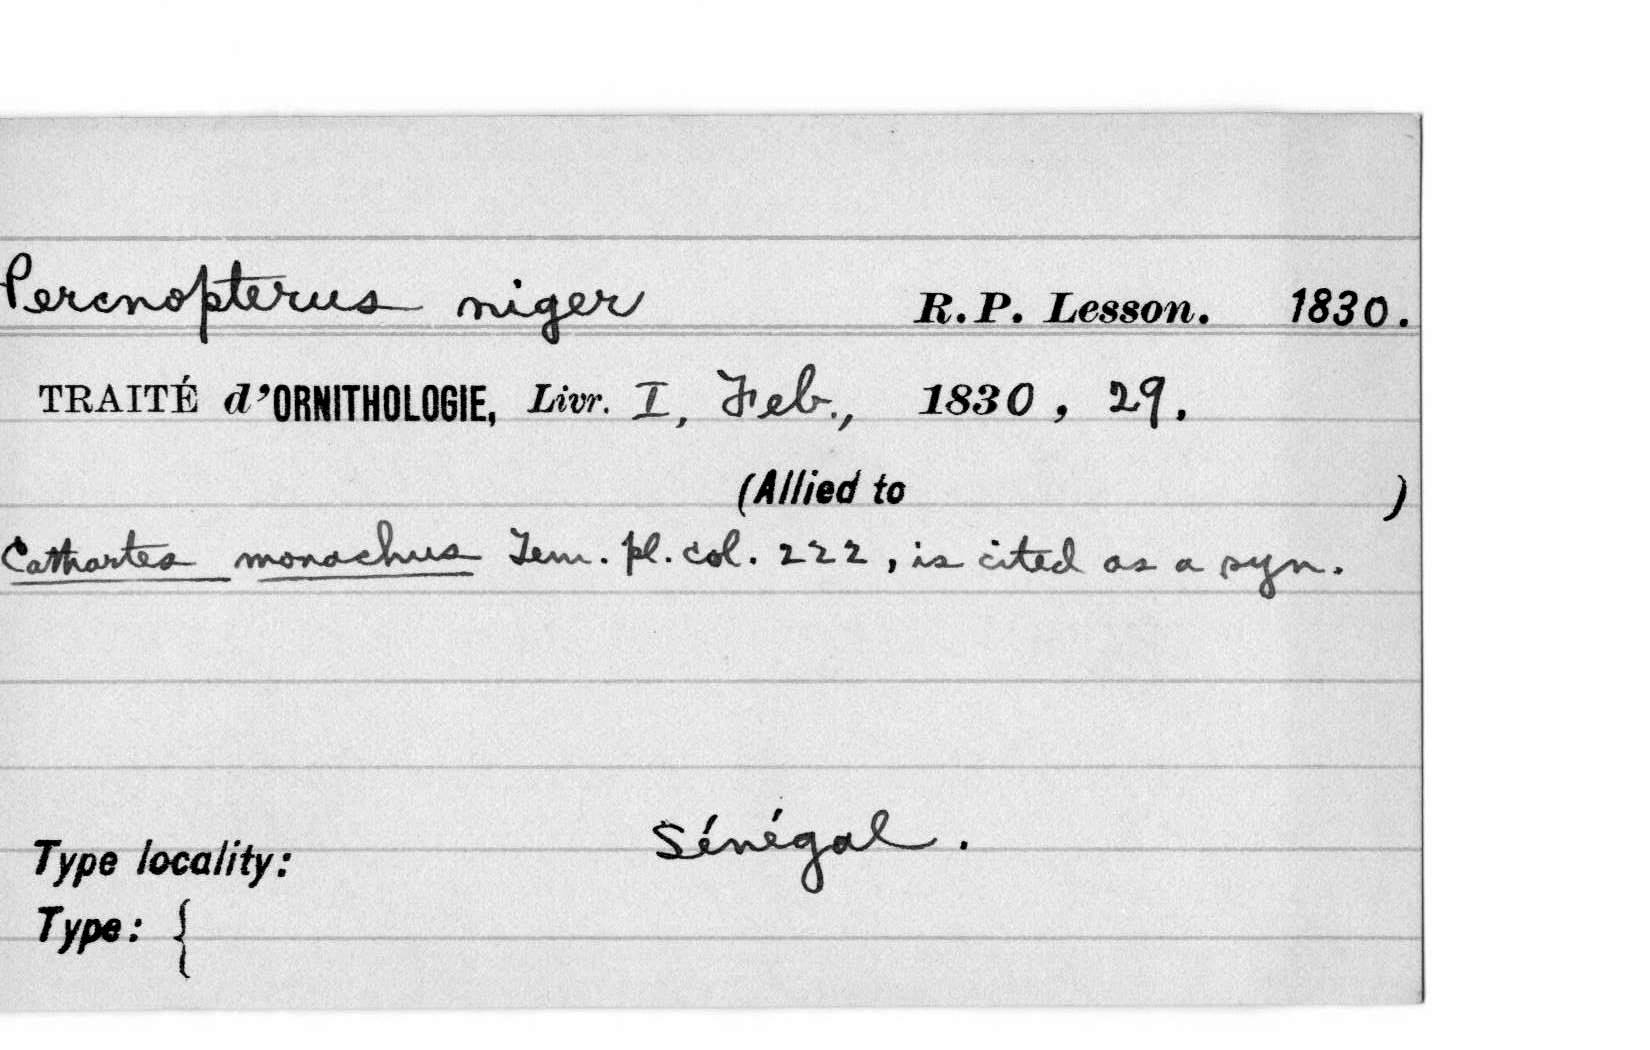 Percnopterus niger R.P. Lesson. 1830.
TRAITÉ d'ORNITHOLOGIE, Livr. I, Feb., 1830, 29.
(Allied to )
Cathartes monachus Tem. pl. col. 222, is cited as a syn.
Type locality: Sénégal.
Type: {